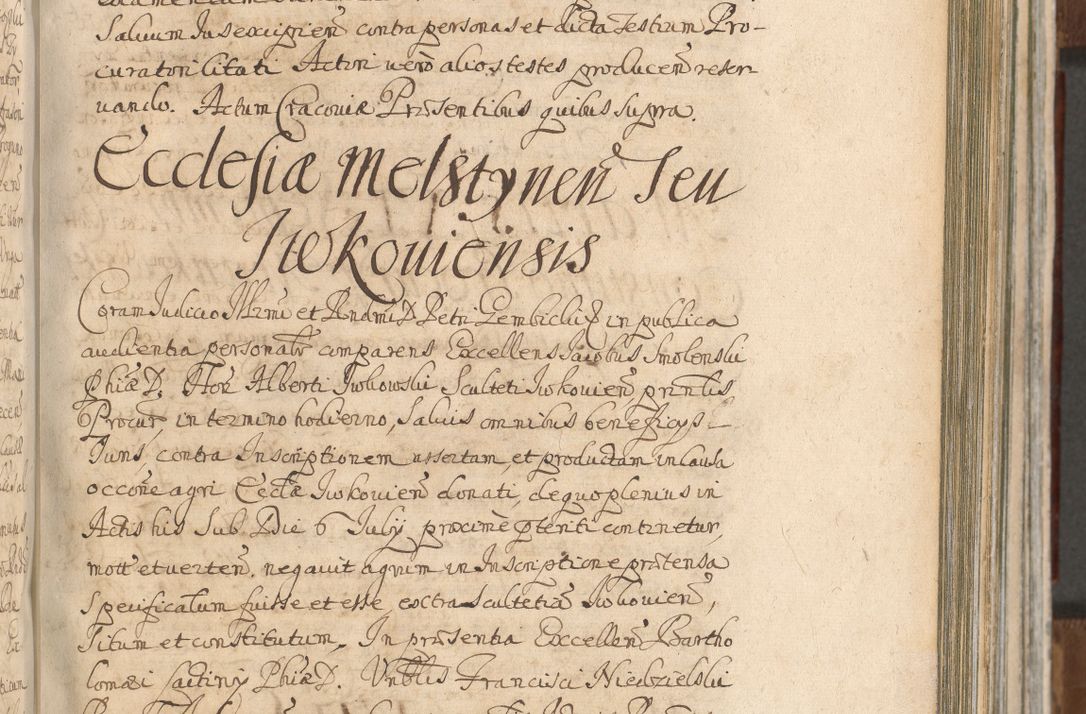 Saluum Ius excipien̄ contra personas et dicta Testium Pro-
curatori litati Actori uerò alios testes producen̄ reser
uando. Actum Cracouiæ Præsentibus quibus supra.
Ecclesiæ Melstynen̄ Seu
Iwkouiensis
Coram Iudicio Illrmi et Rndmi D Petri Gembicki in publica
audientia personalr comparens Excellens Iacobus Smolenski
Phiæ D. Alberti Iwkowski Sculteti Iwkouien̄ prin̄lis
Procur, in termino hodierno, Saluis omnibus beneficys
Iuris, contra Inscriptionem assertam, et productam in causa
occōne agri Eccłæ Iwkouien̄ donati, de quo plenius in
Actis his Sub Die 6 July proximè pteriti continetur,
mott et uerten̄. negauit agrum in Inscriptione prætensa
Specificatum fuisse et esse, extra Scultetiā Iwkouien̄,
Situm et constitutum, In præsentia Excellen̄ Bartho
lomæi Phiæ D. Francisci Niedzielski